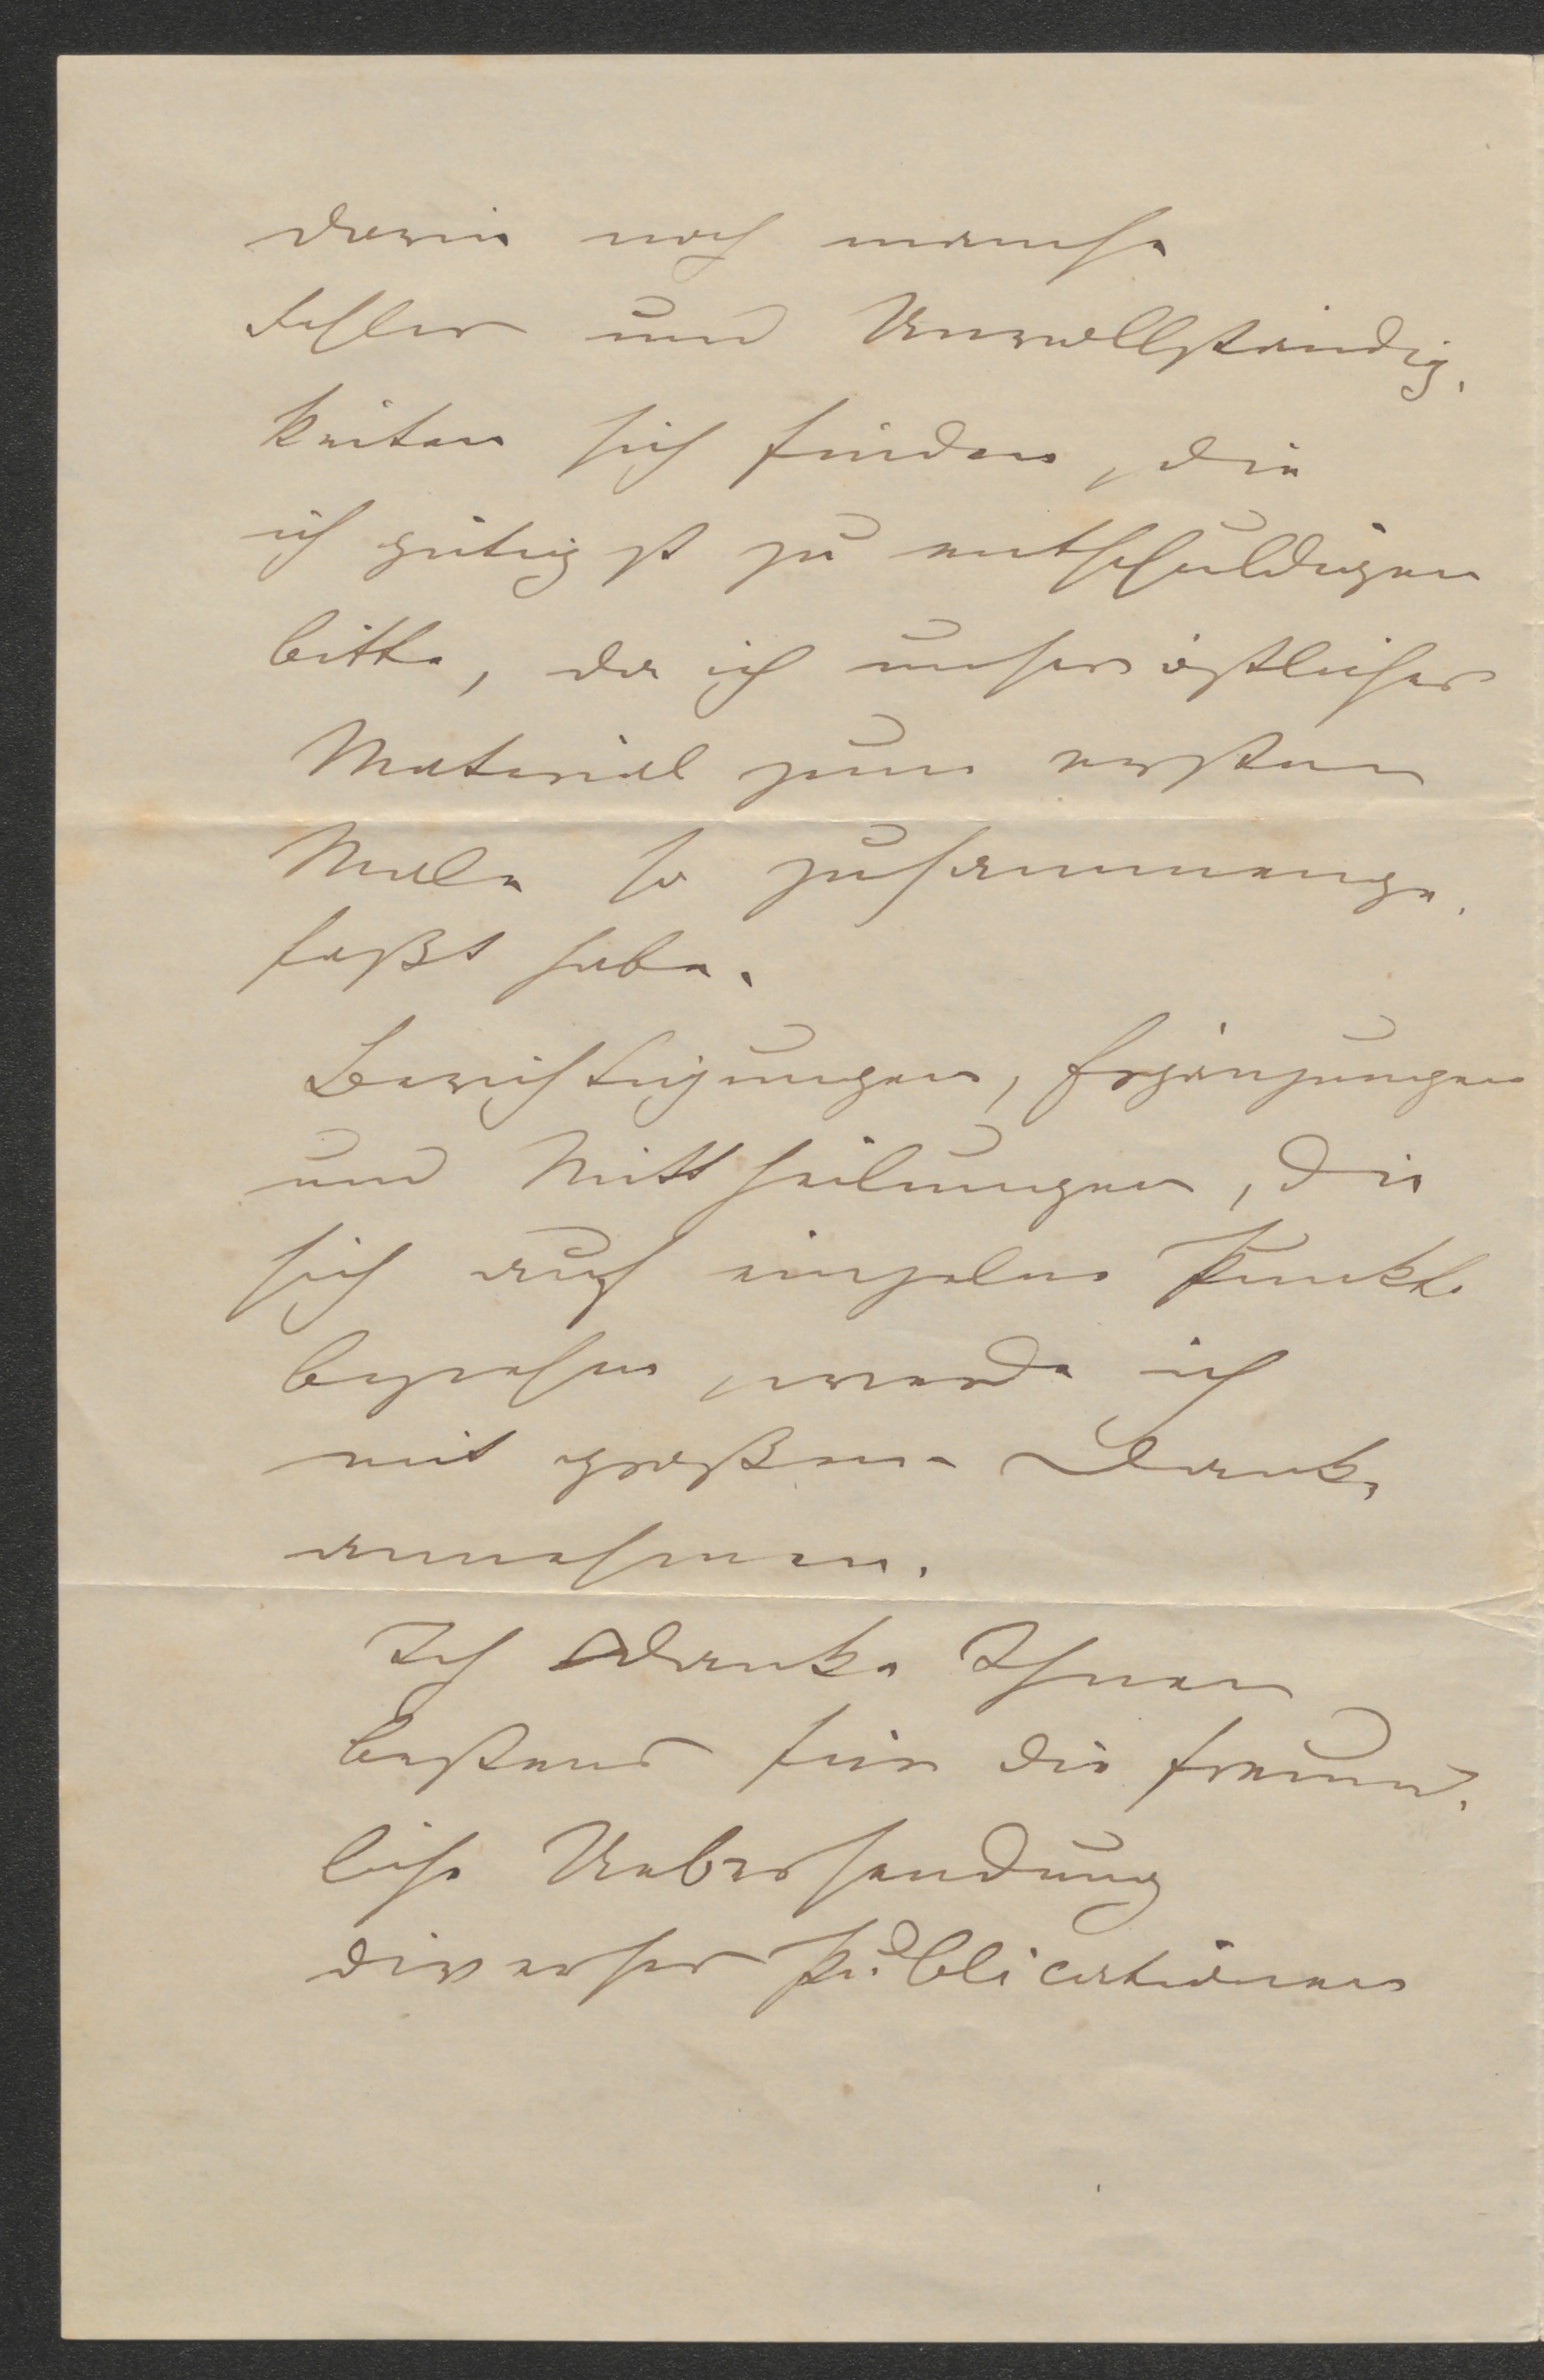 darin noch manche
Fehler und Unvollständig-
keiten sich finden, die
ich gütigst zu entschuldigen
bitte, da ich unser östliches
Material zum ersten
Male so zusammenge-
faßt habe.
Berichtigungen, Ergänzungen
und Mittheilungen, die
sich auf einzelne Punkte
beziehen, werde ich
mit großem Danke
annehmen.
Ich danke Ihnen
bestens für die freund-
liche Uebersendung
diverser Publicationen